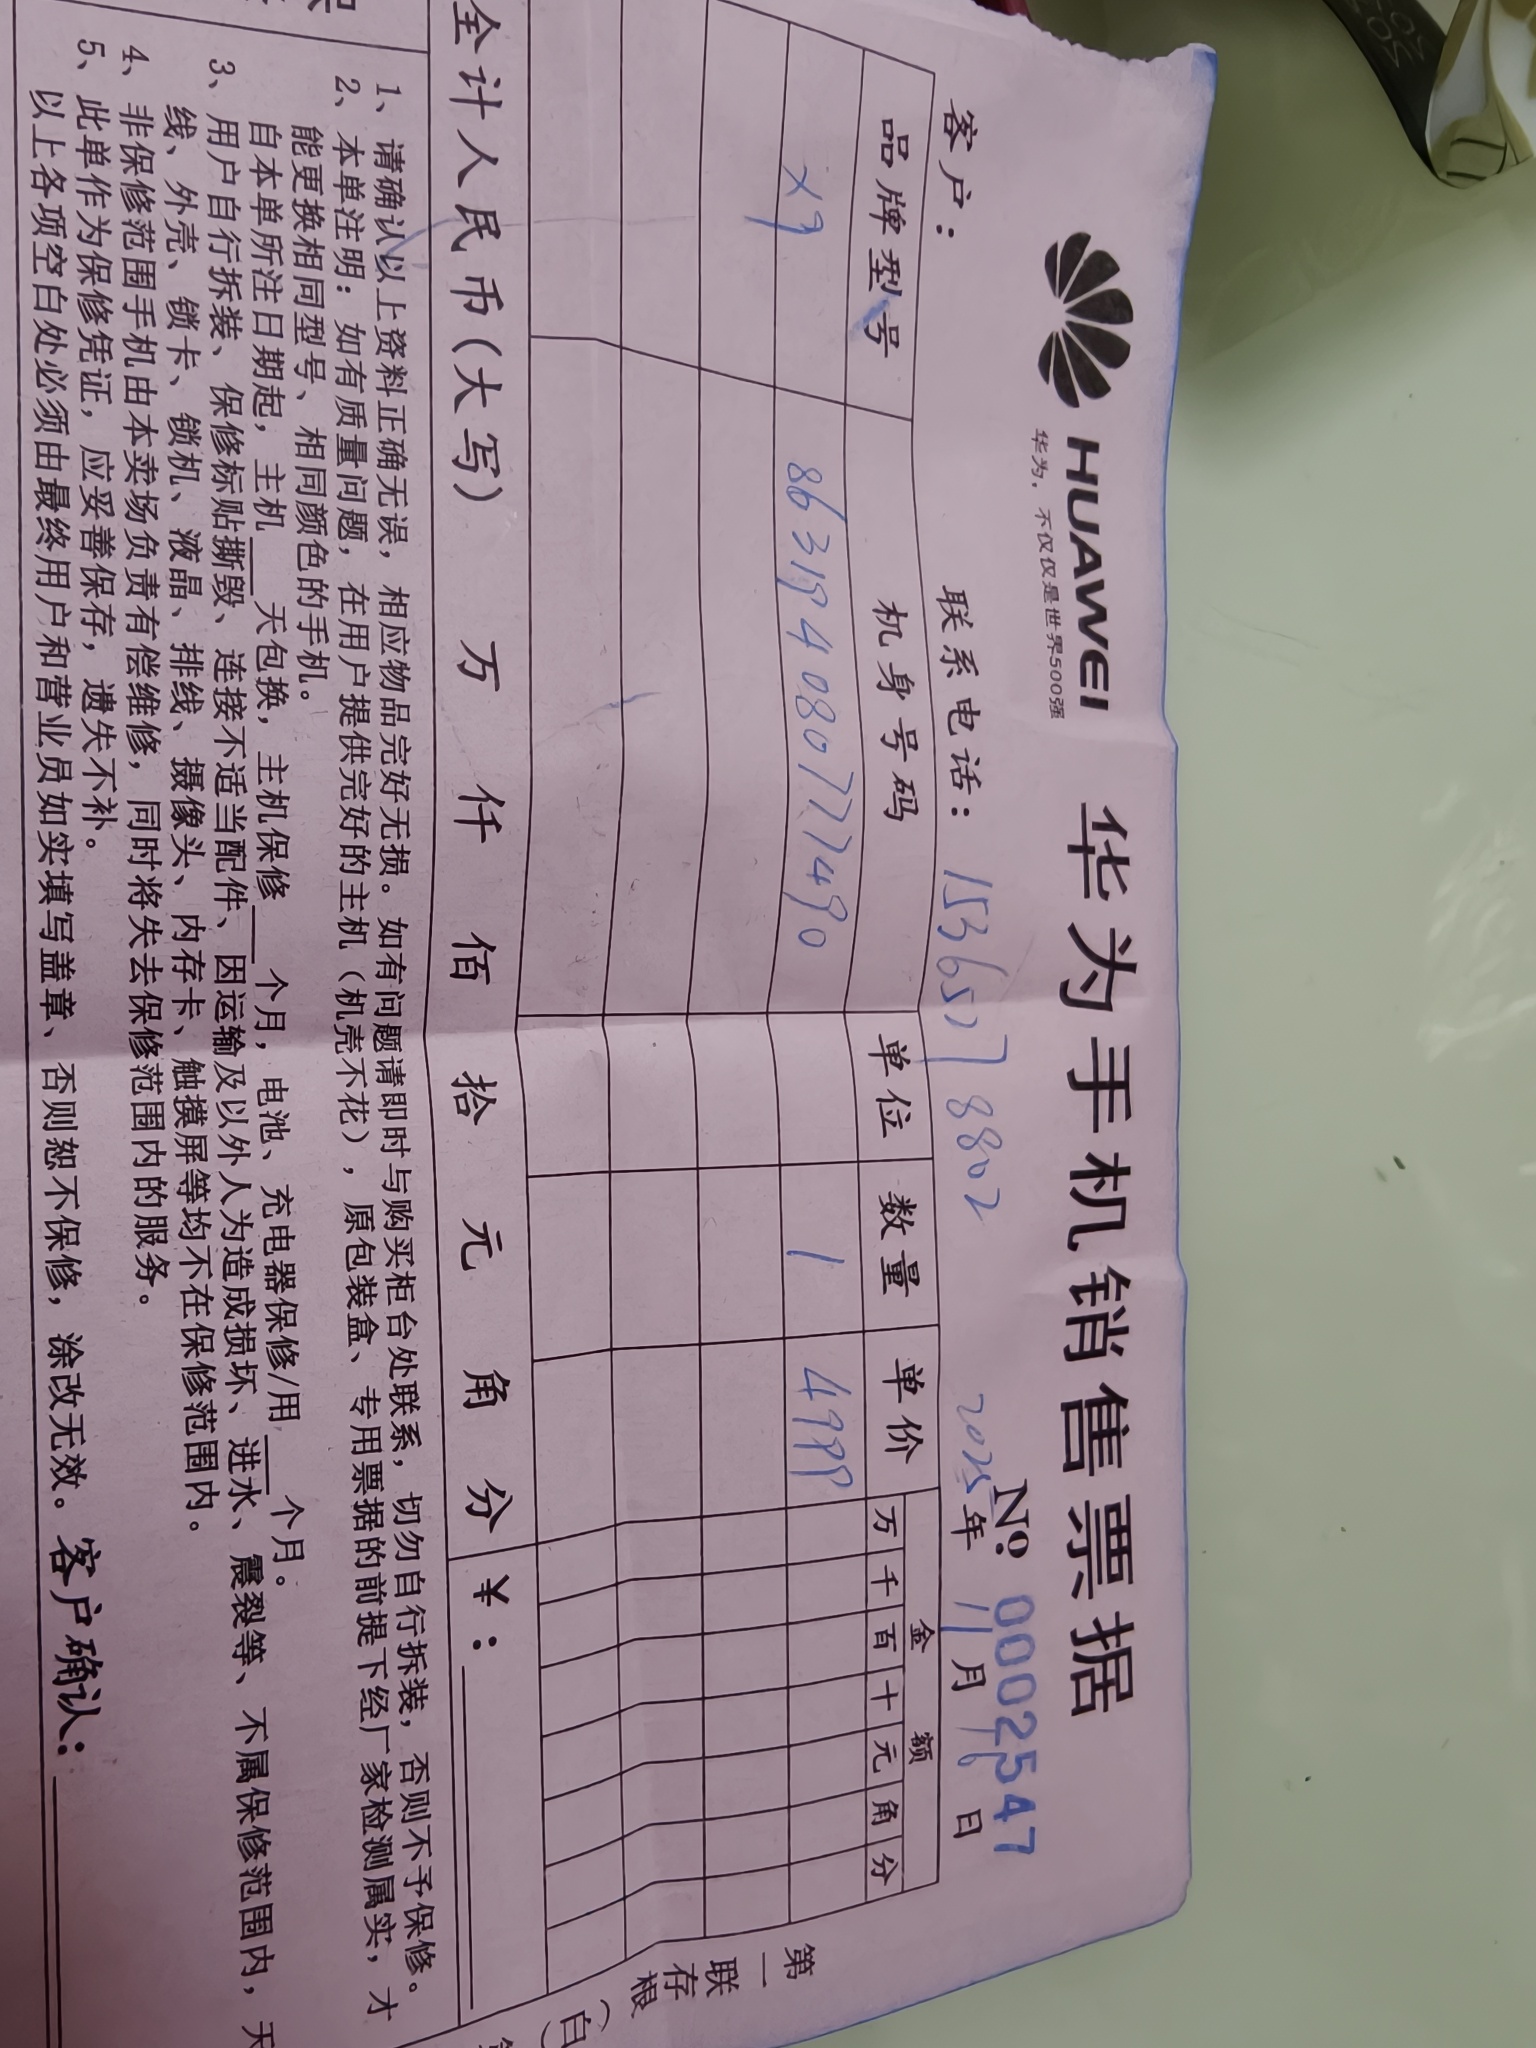 HUAWEI 华为手机销售票据
华为，不仅仅是世界500强
№: 0002547
客户： 联系电话：15365778802 2025年11月16日
品牌型号 机身号码 单位 数量 单价 金额
万 千 百 十 元 角 分
X9 863194080777490 1 4999
全计人民币(大写) 万 仟 佰 拾 元 角 分 ¥：
第一联存根（白
1、请确认以上资料正确无误，相应物品完好无损。如有问题请即时与购买柜台处联系，切勿自行拆装，否则不予保修。
2、本单注明：如有质量问题，在用户提供完好的主机（机壳不花），原包装盒、专用票据的前提下经厂家检测属实，才
能更换相同型号、相同颜色的手机。
自本单所注日期起，主机____天包换，主机保修____个月，电池、充电器保修/用____个月。
3、用户自行拆装、保修标贴撕毁、连接不适当配件、因运输及以外人为造成损坏、进水、震裂等、不属保修范围内，天
线、外壳、锁卡、锁机、液晶、排线、摄像头、内存卡、触摸屏等均不在保修范围内。
4、非保修范围手机由本卖场负责有偿维修，同时将失去保修范围内的服务。
5、此单作为保修凭证，应妥善保存，遗失不补。
以上各项空白处必须由最终用户和营业员如实填写盖章、否则恕不保修，涂改无效。客户确认：